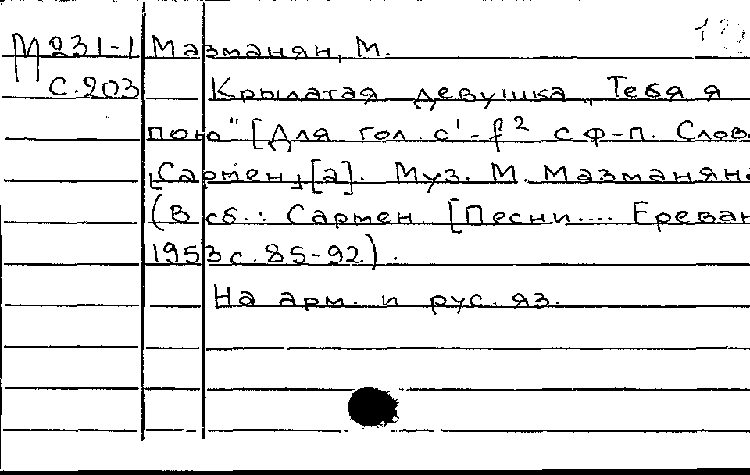 М231-1 Мазманян, М.
С.203 Крылатая девушка, Тебя я
пою" [Для гол. c¹-f² с ф-п. Слов
"Сармен„[а]. Муз. М. Мазманяна
(В сб.: Сармен. [Песни.... Ереван
1953 с. 85-92).
На арм. и рус. яз.